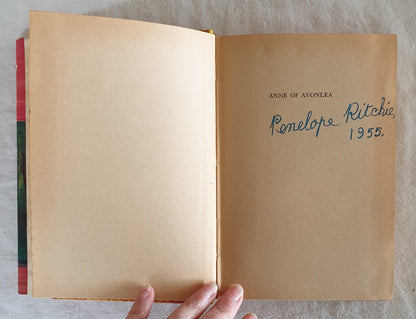 ANNE OF AVONLEA
Penelope Ritchie,
1955.